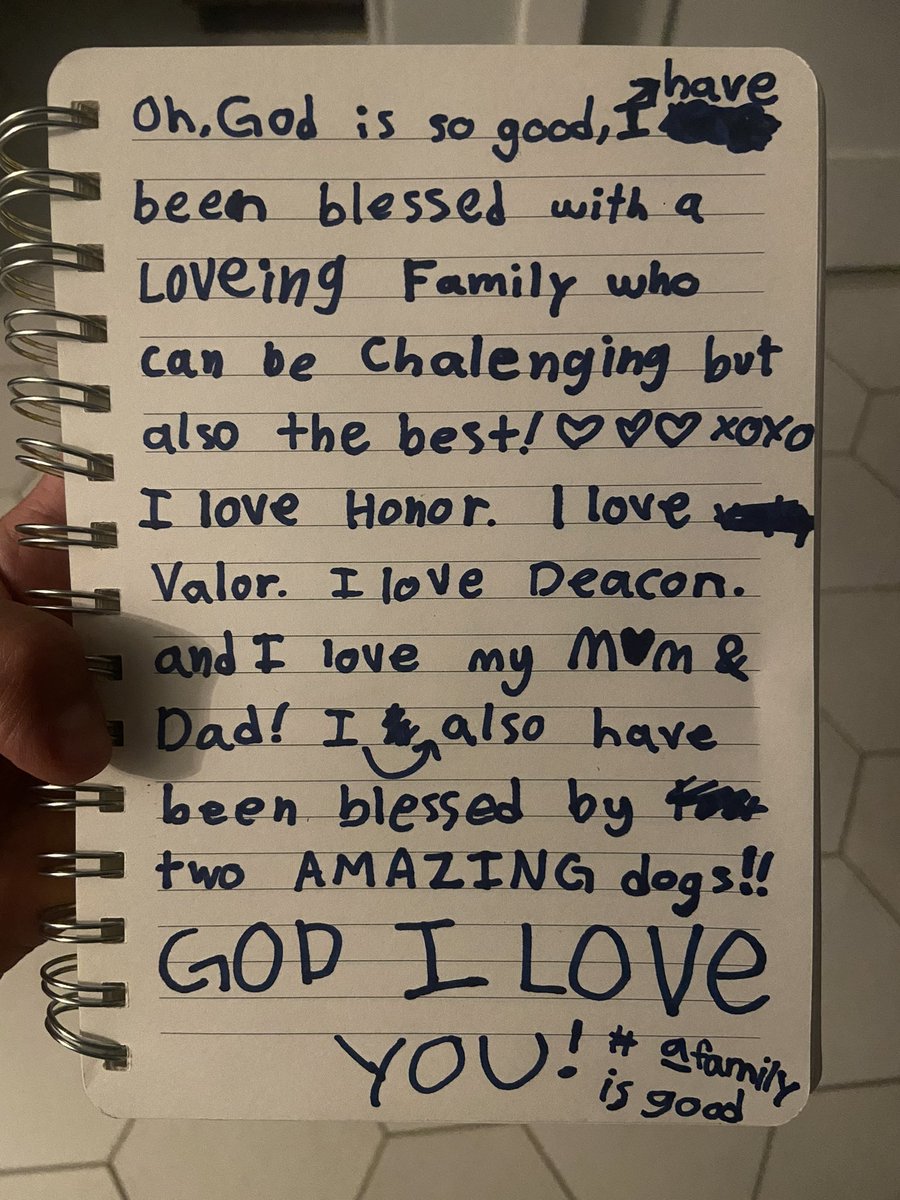 Oh, God is so good, I have
been blessed with a
Loveing Family who
can be Chalenging but
also the best! ♡♡♡ xoxo
I love Honor. I love
Valor. I love Deacon.
and I love my M♥m &
Dad! I also have
been blessed by
two AMAZING dogs!!
GOD I LOVe
YOU! # a family
is good